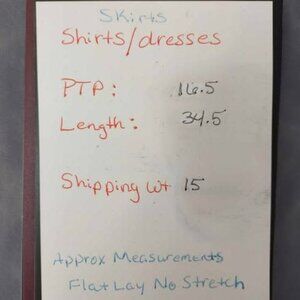 Skirts
Shirts/dresses
PTP: 16.5
Length: 34.5
Shipping wt 15
Approx Measurements
Flat Lay No Stretch